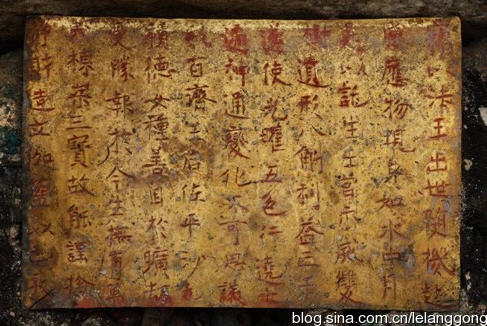 竊以法王出世隨機赴
感應物現身如水中月
是以託生王宮示滅雙
樹遺形八斛利益三千
遂使光曜五色行遶七
遍神通變化不可思議
我百濟王后佐平沙乇
積德女種善因於曠劫
受勝報於今生撫育萬
民棟梁三寶故能謹捨
淨財造立伽藍以己亥
blog.sina.com.cn/lelanggong